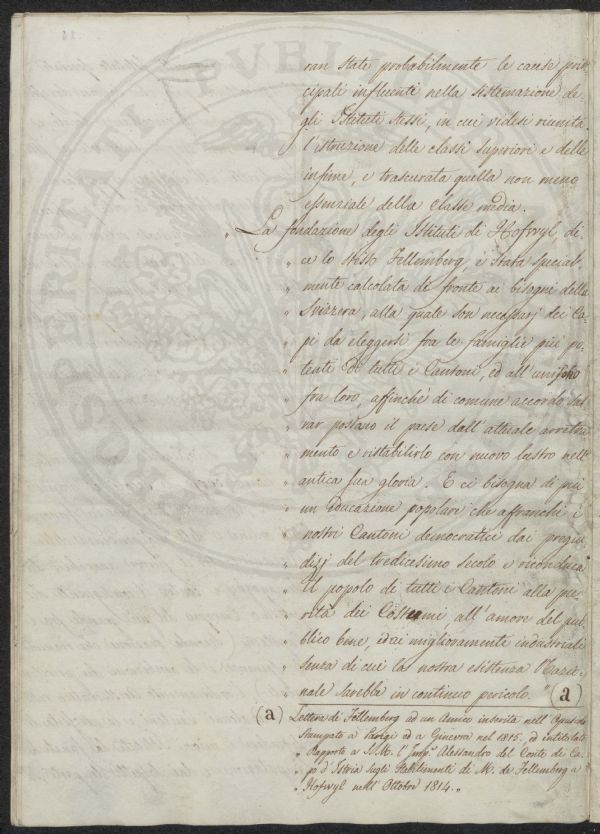 ran state probabilmente le cause prin
cipali influenti nella sistemazione de-
gli Istituti stessi, in cui videsi riunita
l'istruzione delle classi superiori e delle
infime, e trascurata quella non meno
essenziale della classe media.
„ La fondazione degli Istituti di Hofwyl, di
„ ce lo stesso Fellemberg, è stata special
„ mente calcolata di fronte ai bisogni della
„ Svizzera, alla quale son necessarj dei Ca-
„ pi da eleggersi fra le famiglie più po-
„ tenti di tutti i Cantoni, ed all'unisono
„ fra loro, affinchè di comune accordo sal
„ var possano il paese dall'attuale avvili
„ mento e ristabilirlo con nuovo lustro nell'
„ antica sua gloria. E ci bisogna di più
„ un educazione popolare che affranchi i
„ nostri Cantoni democratici dai pregiu
„ dizj del tredicesimo secolo e riconduca
„ il popolo di tutti i Cantoni alla pu-
„ rità dei Costumi, all'amore del pub
„ blico bene, ed ai miglioramente industriali
„ senza di cui la nostra esistenza Nazio-
„ nale sarebbe in continuo pericolo. „ (a)
(a) Lettera di Fellemberg ad un Amico inserita nell'Opuscolo
Stampato a Parigi ed a Ginevra nel 1815, ed intitolato
„ Rapporto a S.M. l'Impre Alessandro del Conte di Ca-
„ po d'Istria sugli Stabilimenti di M. de Fellemberg a
„ Hofwyl nell'Ottobre 1814.„
PROSPERITATI PUBLICAE